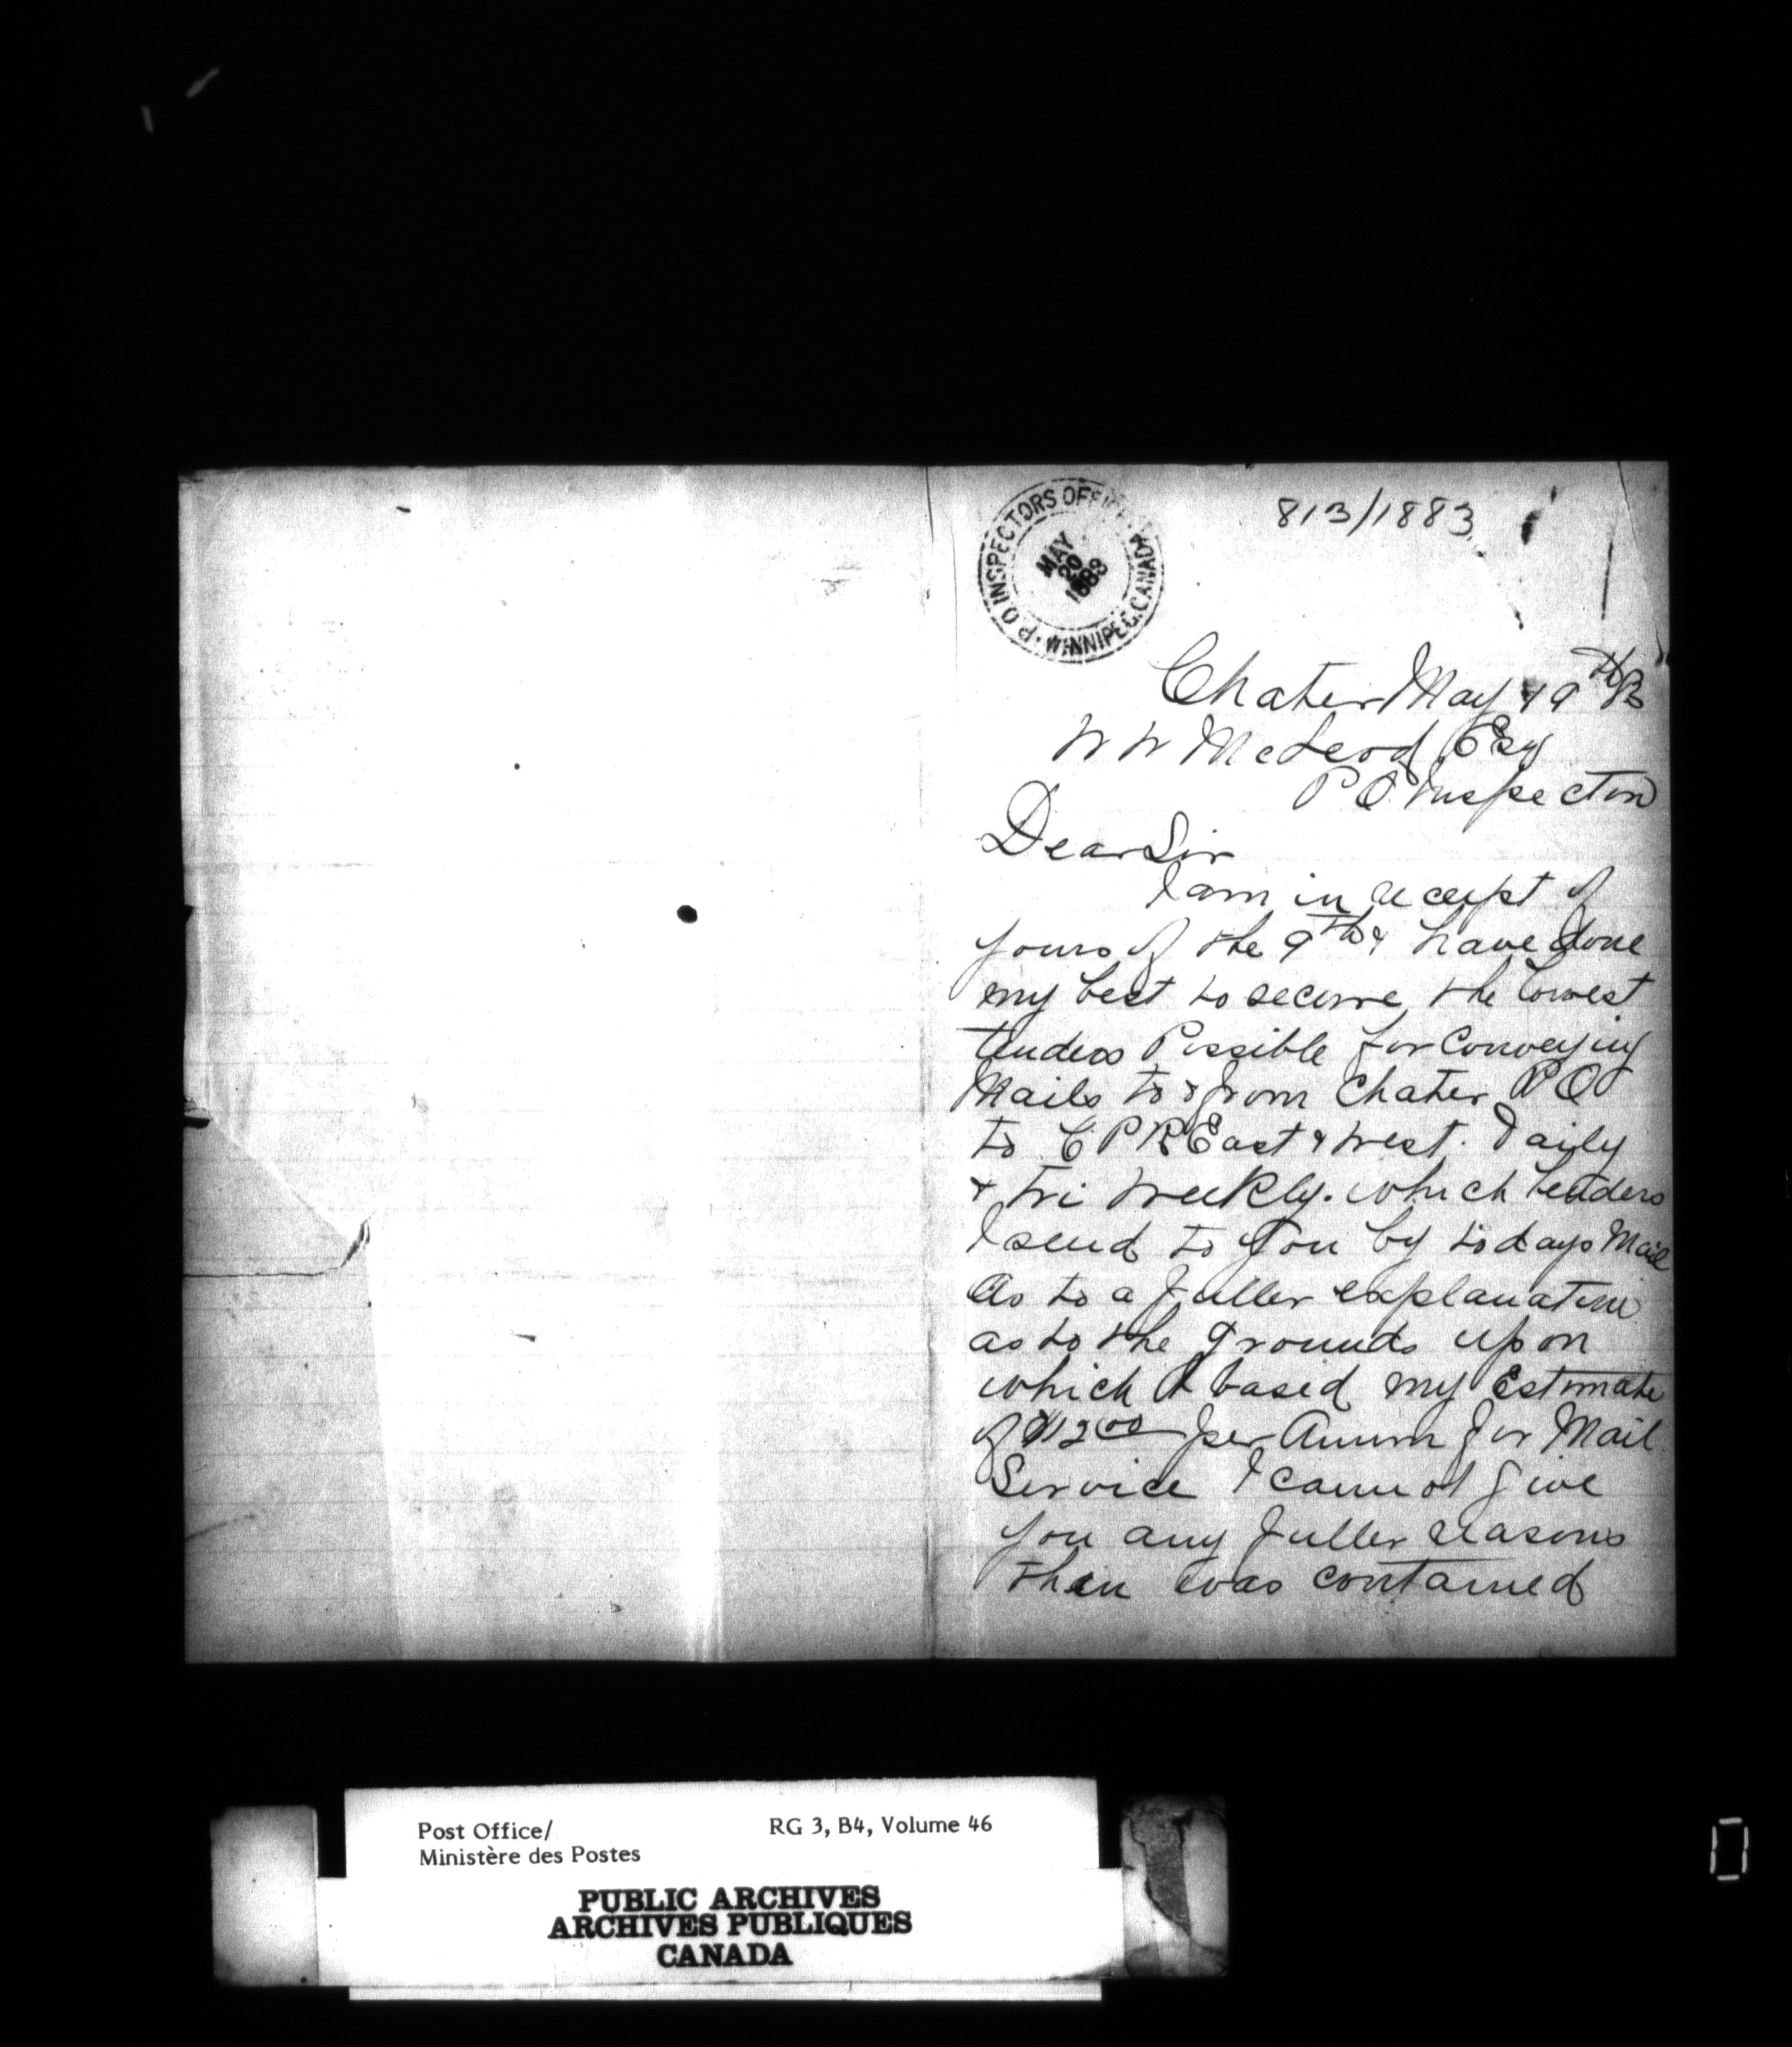 813/1883
P O INSPECTORS OFFICE
MAY
1883
WINNIPEG. CANADA
Chater May 19th/83
W W McLeod Esq
P O Inspector
Dear Sir
I am in receipt of
yours of the 9th & have done
my best to secure the lowest
tenders Possible for Conveying
Mails to & from Chater P O
to C P R East & West. Daily
& Tri Weekly. which tenders
I send to you by todays Mail
As to a fuller explanation
as to the grounds upon
which I based my Estimate
of $112 00 per Annum for Mail
Service I cannot give
you any fuller reasons
than was contained
Post Office/ RG 3, B4, Volume 46
Ministère des Postes
PUBLIC ARCHIVES
ARCHIVES PUBLIQUES
CANADA